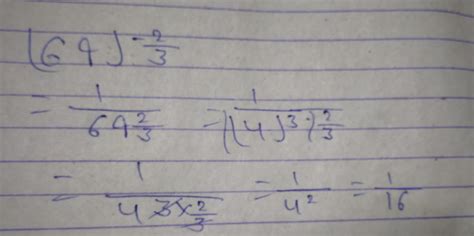 (64)^{-2/3}
= 1/64^{2/3} = 1/((4)^3)^{2/3}
= 1/4^{3×2/3} = 1/4^2 = 1/16